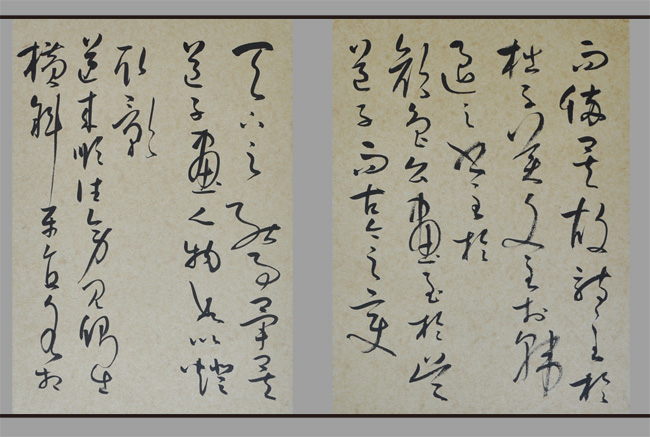 而備矣故詩至於
杜子美文至於韓
退之書至於
顏魯公畫至於吳
道子而古今之變
天下之能事畢矣
道子畫人物如以燈
取影
逆來順往旁見側出
橫斜平直各相